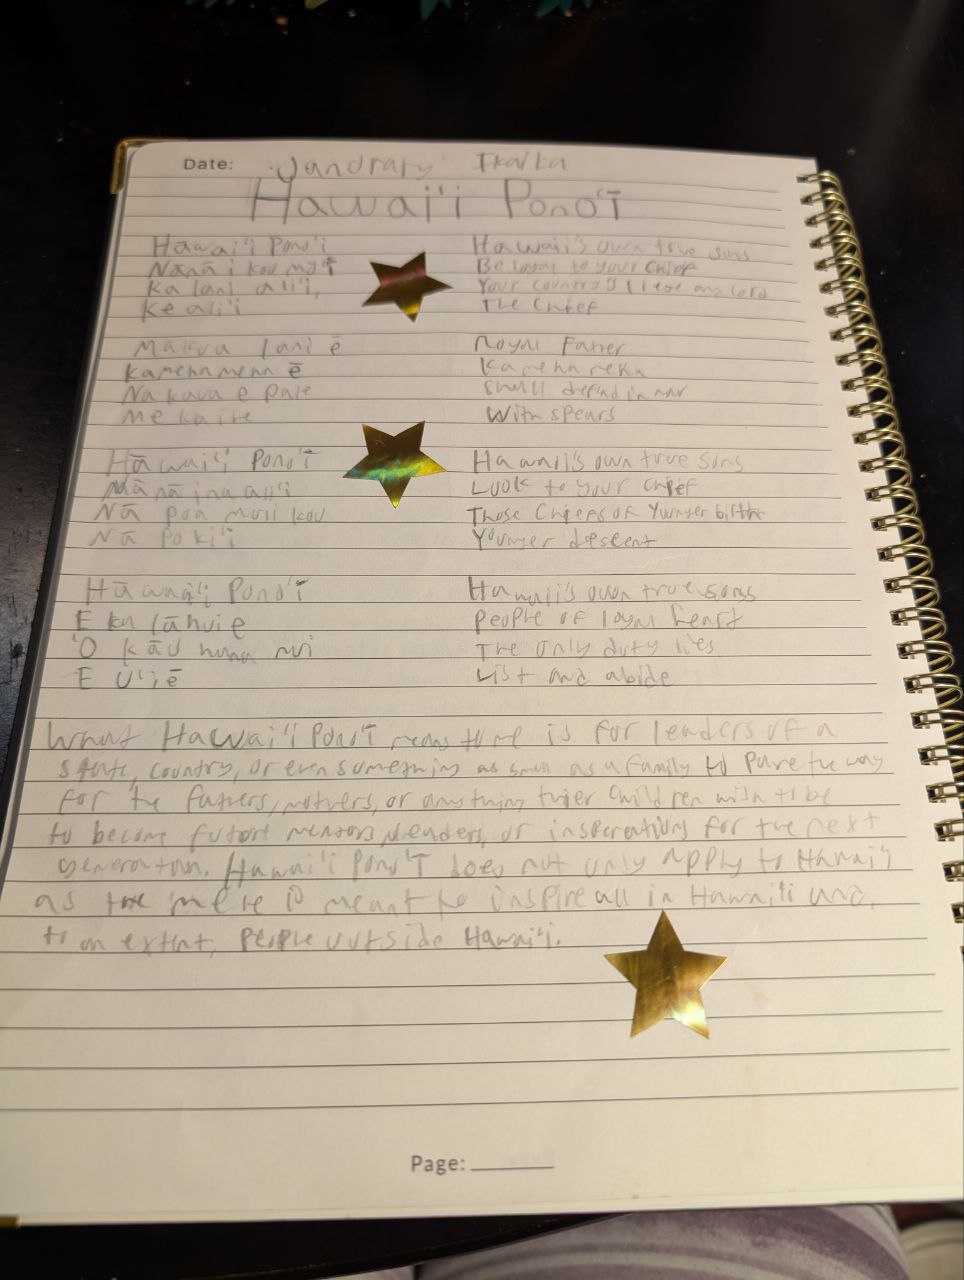 Date: Jandrary Ikaika
Hawai'i Pono'ī
Hawai'i Pono'i
Nānā i kou mō'ī
Ka lani ali'i,
Ke ali'i
Makua lani ē
Kamehameha ē
Na kaua e pale
Me ka ihe
Hāwai'i Pono'ī
Nānā i na ali'i
Nā pua muli kou
Nā Poki'i
Hāwai'i Pono'ī
E ka lāhui e
'O kāu hana nui
E Ui ē
Hawaii's own true sons
Be loyal to your chief
Your country's liege and lord
The Chief
Royal Father
Kamehameha
Shall defend in war
With spears
Hawaii's own true sons
Look to your chief
Those Chiefs of Younger birth
Younger descent
Hawaii's own true sons
People of loyal heart
The only duty lies
List and abide
What Hawai'i Pono'ī means to me is for leaders of a
state, country, or even something as small as a family to pave the way
for the fathers, mothers, or anything thier children wish to be
to become future mentors, leaders, or insperations for the next
generation. Hawai'i Pono'ī does not only apply to Hawai'i
as the mele is meant to inspire all in Hawai'i and,
to an extent, people outside Hawai'i.
Page: